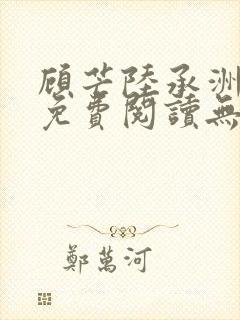 顧芒陸承洲
免費閱讀無
鄭萬河